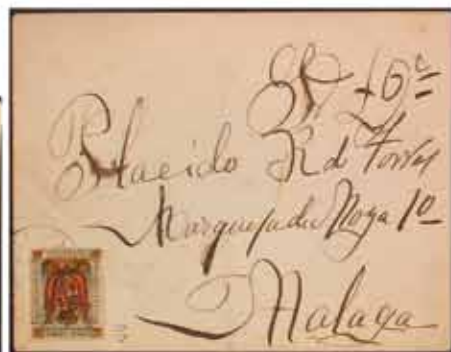 Sr Dn
Placido R d Torres
Marquesa de Moya 10
Malaga